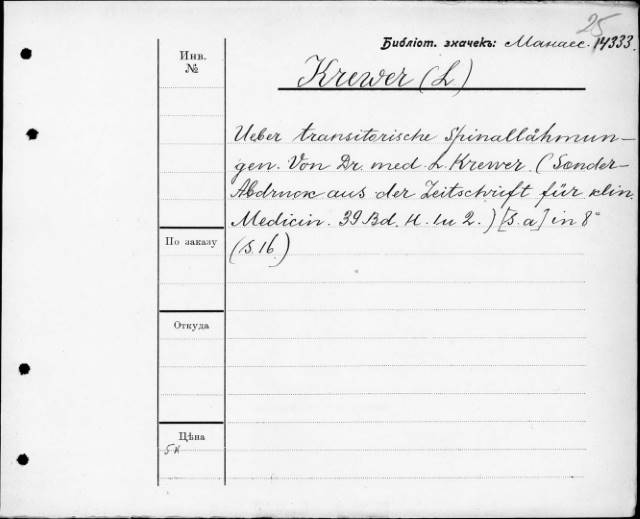 25
Библіот. значекъ: Манасс. 14333.
Инв.
№
Krewer (L)
Ueber transitorische Spinallähmun-
gen. Von Dr. med. L. Krewer. (Sonder-
Abdruck aus der Zeitschrift für klin.
Medicin. 39 Bd. H. 1 u 2.) [S. a] in 8°
(S. 16.)
По заказу
Откуда
Цѣна
5к